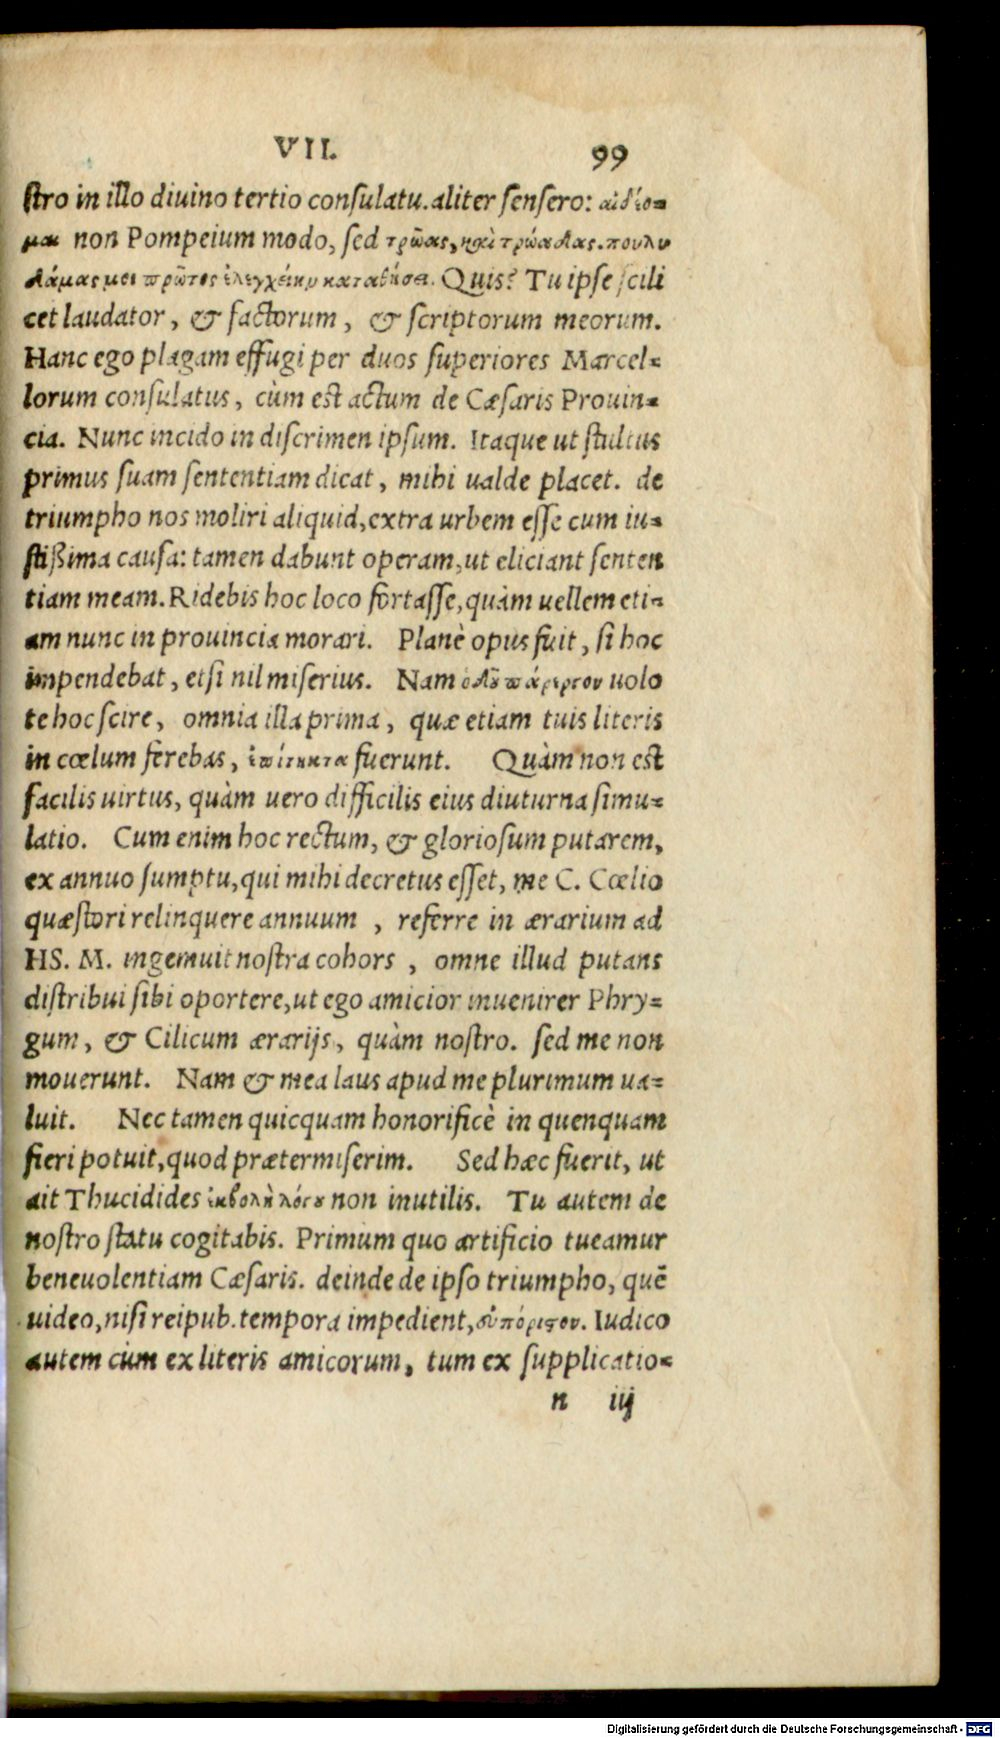 VII. 99
ſtro in illo diuino tertio conſulatu. aliter ſenſero: αἰδέο-
μαι non Pompeium modo, ſed τρῶας, καὶ τρώαδας. πουλυ
δάμας μοι πρῶτος ἐλεγχείην καταθήσει. Quis? Tu ipſe ſcili
cet laudator, & factorum, & ſcriptorum meorum.
Hanc ego plagam effugi per duos ſuperiores Marcel-
lorum conſulatus, cùm est actum de Cæſaris Prouin-
cia. Nunc incido in diſcrimen ipſum. Itaque ut ſtultus
primus ſuam ſententiam dicat, mihi ualde placet. de
triumpho nos moliri aliquid, extra urbem eſſe cum iu-
ſtißima cauſa: tamen dabunt operam, ut eliciant ſenten
tiam meam. Ridebis hoc loco fortaſſe, quàm uellem eti-
am nunc in prouincia morari. Planè opus fuit, ſi hoc
impendebat, etſi nil miſerius. Nam ὁδοῦ πάρεργον uolo
te hoc ſcire, omnia illa prima, quæ etiam tuis literis
in cœlum ferebas, ἐπίτηκτα fuerunt. Quàm non est
facilis uirtus, quàm uero difficilis eius diuturna ſimu-
latio. Cum enim hoc rectum, & glorioſum putarem,
ex annuo ſumptu, qui mihi decretus eſſet, me C. Cœlio
quæſtori relinquere annuum, referre in ærarium ad
HS. M. ingemuit noſtra cohors, omne illud putans
diſtribui ſibi oportere, ut ego amicior inuenirer Phry-
gum, & Cilicum ærarijs, quàm noſtro. ſed me non
mouerunt. Nam & mea laus apud me plurimum ua-
luit. Nec tamen quicquam honorificè in quenquam
fieri potuit, quod prætermiſerim. Sed hæc fuerit, ut
ait Thucidides ἐκβολὴ λόγου non inutilis. Tu autem de
noſtro ſtatu cogitabis. Primum quo artificio tueamur
beneuolentiam Cæſaris. deinde de ipſo triumpho, quē
uideo, niſi reipub. tempora impedient, εὐπόριστον. Iudico
autem cùm ex literis amicorum, tum ex ſupplicatio-
n iij
Digitalisierung gefördert durch die Deutsche Forschungsgemeinschaft - DFG